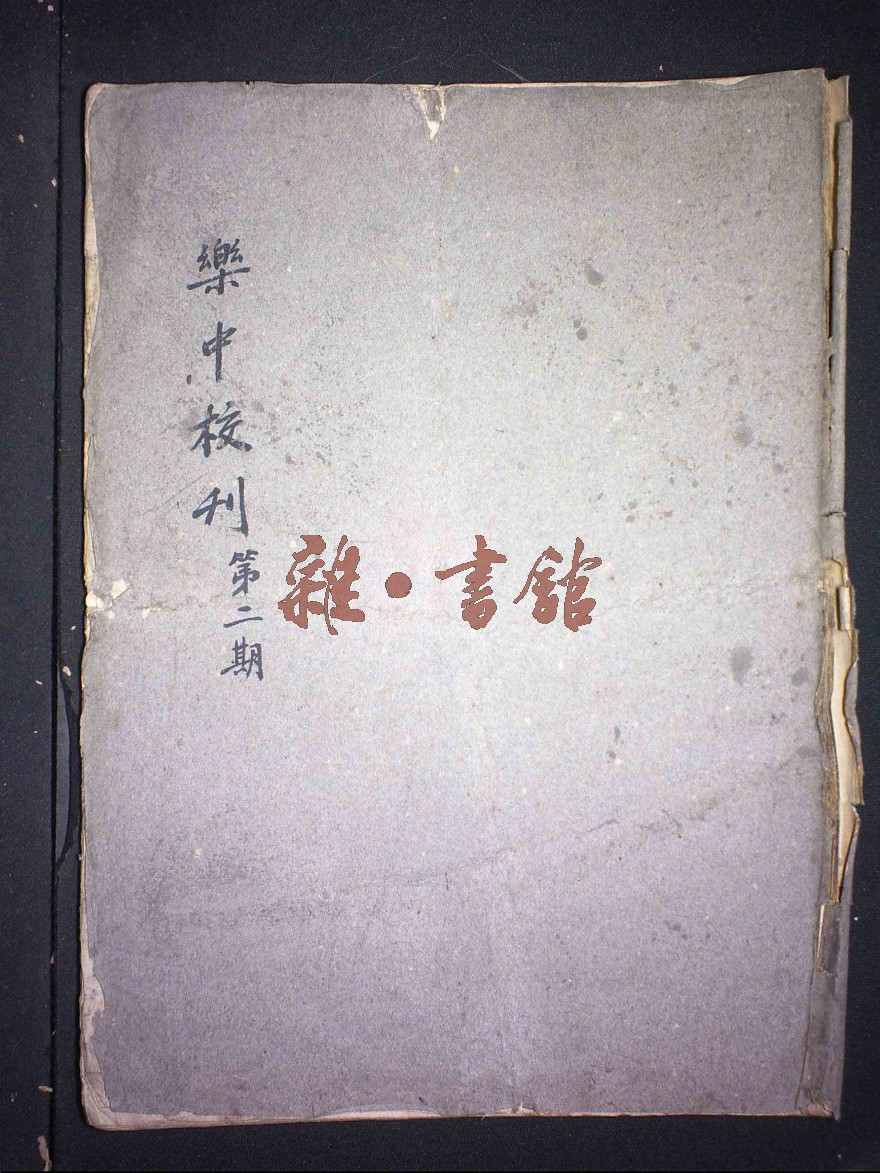 樂中校刊 第二期
雜·書館